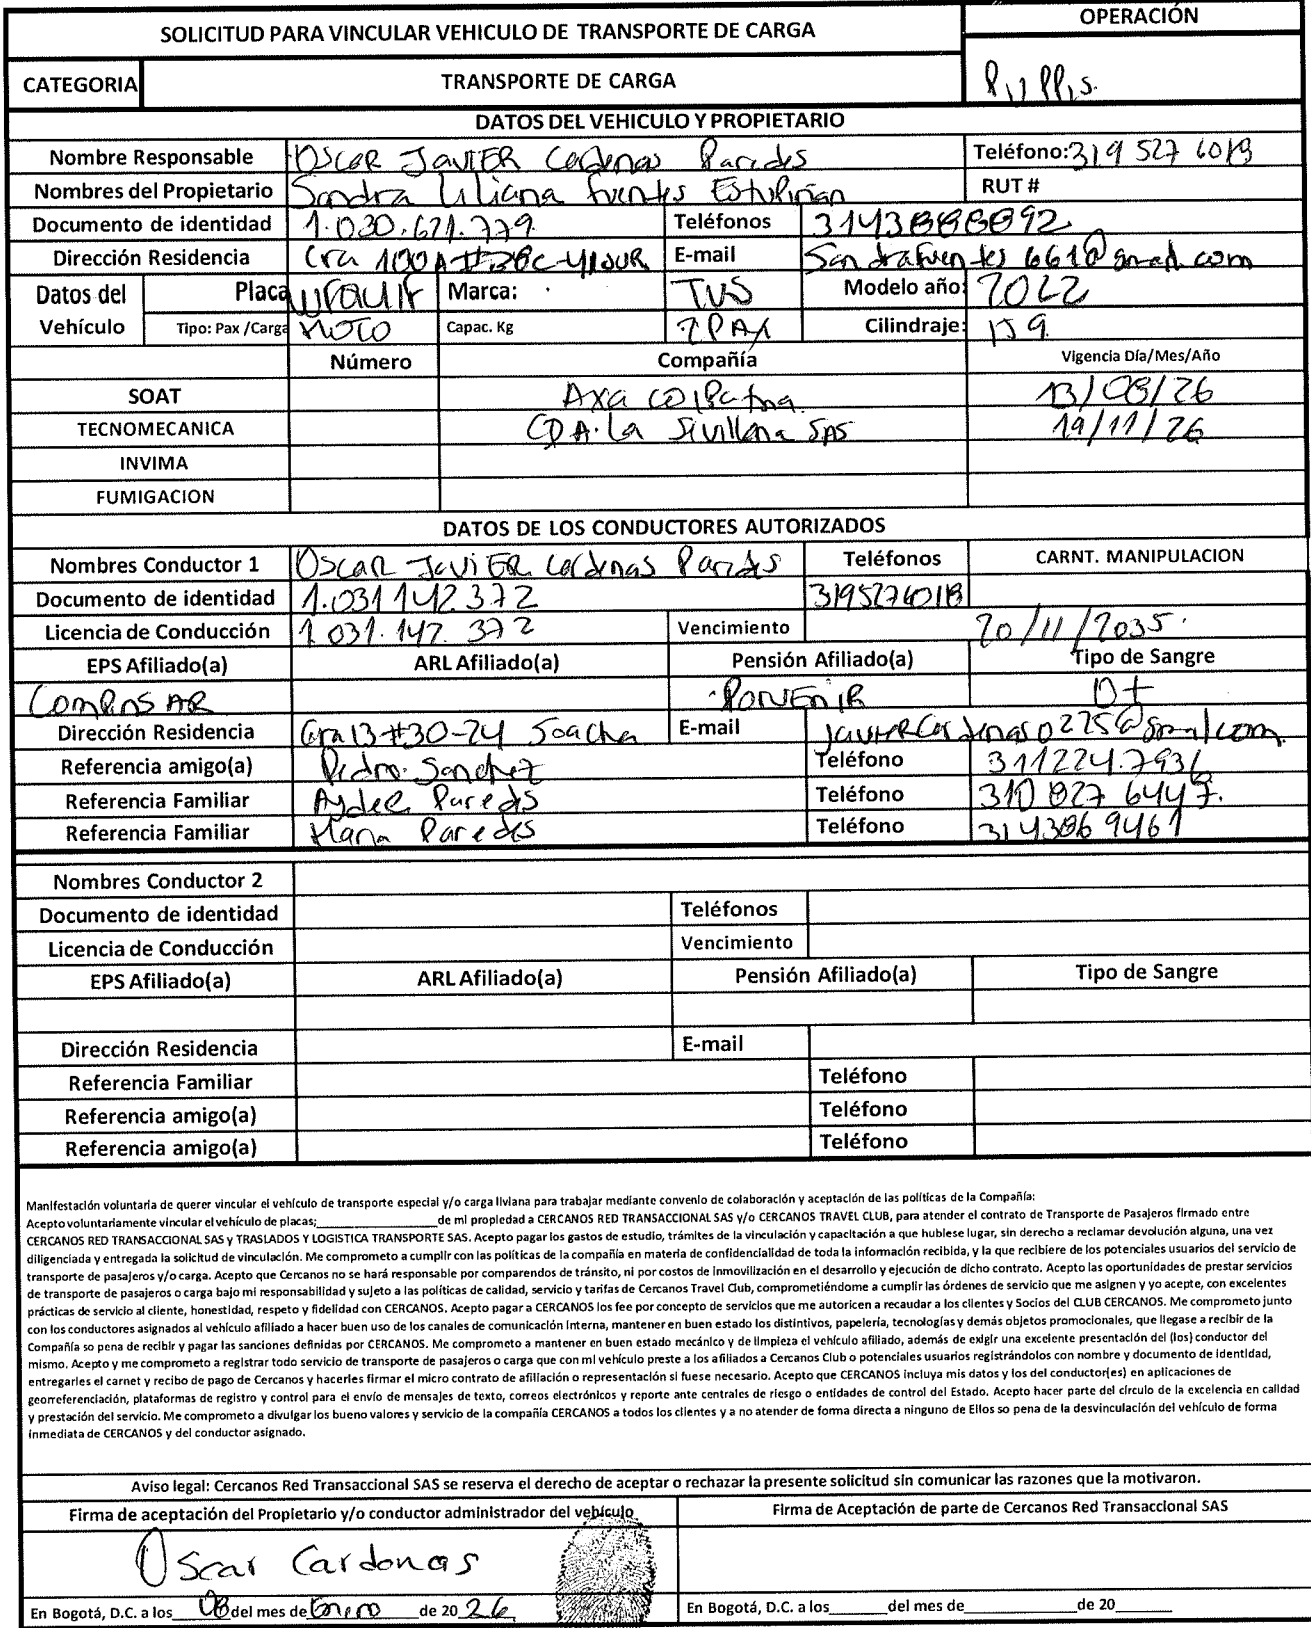 SOLICITUD PARA VINCULAR VEHICULO DE TRANSPORTE DE CARGA
OPERACIÓN
CATEGORIA
TRANSPORTE DE CARGA
DATOS DEL VEHICULO Y PROPIETARIO
Nombre Responsable OSCAR JAVIER Cardenas Paredes Teléfono: 319 527 6018
Nombres del Propietario Sandra Liliana Fuentes Estupiñan RUT #
Documento de identidad 1.030.621.779 Teléfonos 3143888892
Dirección Residencia Cra 100A #38C-41SUR E-mail Sandrafuentes661@gmail.com
Datos del Vehículo Placa Marca: TVS Modelo año: 2022
Tipo: Pax /Carga MOTO Capac. Kg 2 PAX Cilindraje: 159
Número Compañía Vigencia Día/Mes/Año
SOAT Axa colpatria 13/08/26
TECNOMECANICA CDA. La Sevillana SAS 19/11/26
INVIMA
FUMIGACION
DATOS DE LOS CONDUCTORES AUTORIZADOS
Nombres Conductor 1 OSCAR JAVIER Cardenas Paredes Teléfonos CARNT. MANIPULACION
Documento de identidad 1.031142372 3195276018
Licencia de Conducción 1.031.142.372 Vencimiento 20/11/2035.
EPS Afiliado(a) ARL Afiliado(a) Pensión Afiliado(a) Tipo de Sangre
CompensAR PORVENIR O+
Dirección Residencia Cra 13 #30-24 Soacha E-mail JavierCardenas0225@gmail.com
Referencia amigo(a) Pedro Sanchez Teléfono 3112247936
Referencia Familiar Aydee Paredes Teléfono 310 827 6447.
Referencia Familiar Maria Paredes Teléfono 3143869461
Nombres Conductor 2
Documento de identidad Teléfonos
Licencia de Conducción Vencimiento
EPS Afiliado(a) ARL Afiliado(a) Pensión Afiliado(a) Tipo de Sangre
Dirección Residencia E-mail
Referencia Familiar Teléfono
Referencia amigo(a) Teléfono
Referencia amigo(a) Teléfono
Manifestación voluntaria de querer vincular el vehículo de transporte especial y/o carga liviana para trabajar mediante convenio de colaboración y aceptación de las políticas de la Compañía:
Acepto voluntariamente vincular el vehículo de placas;____________________de mi propiedad a CERCANOS RED TRANSACCIONAL SAS y/o CERCANOS TRAVEL CLUB, para atender el contrato de Transporte de Pasajeros firmado entre
CERCANOS RED TRANSACCIONAL SAS y TRASLADOS Y LOGISTICA TRANSPORTE SAS. Acepto pagar los gastos de estudio, trámites de la vinculación y capacitación a que hubiese lugar, sin derecho a reclamar devolución alguna, una vez
diligenciada y entregada la solicitud de vinculación. Me comprometo a cumplir con las políticas de la compañía en materia de confidencialidad de toda la información recibida, y la que recibiere de los potenciales usuarios del servicio de
transporte de pasajeros y/o carga. Acepto que Cercanos no se hará responsable por comparendos de tránsito, ni por costos de inmovilización en el desarrollo y ejecución de dicho contrato. Acepto las oportunidades de prestar servicios
de transporte de pasajeros o carga bajo mi responsabilidad y sujeto a las políticas de calidad, servicio y tarifas de Cercanos Travel Club, comprometiéndome a cumplir las órdenes de servicio que me asignen y yo acepte, con excelentes
prácticas de servicio al cliente, honestidad, respeto y fidelidad con CERCANOS. Acepto pagar a CERCANOS los fee por concepto de servicios que me autoricen a recaudar a los clientes y Socios del CLUB CERCANOS. Me comprometo junto
con los conductores asignados al vehículo afiliado a hacer buen uso de los canales de comunicación interna, mantener en buen estado los distintivos, papelería, tecnologías y demás objetos promocionales, que llegase a recibir de la
Compañía so pena de recibir y pagar las sanciones definidas por CERCANOS. Me comprometo a mantener en buen estado mecánico y de limpieza el vehículo afiliado, además de exigir una excelente presentación del (los) conductor del
mismo. Acepto y me comprometo a registrar todo servicio de transporte de pasajeros o carga que con mi vehículo preste a los afiliados a Cercanos Club o potenciales usuarios registrándolos con nombre y documento de identidad,
entregarles el carnet y recibo de pago de Cercanos y hacerles firmar el micro contrato de afiliación o representación si fuese necesario. Acepto que CERCANOS incluya mis datos y los del conductor(es) en aplicaciones de
georreferenciación, plataformas de registro y control para el envío de mensajes de texto, correos electrónicos y reporte ante centrales de riesgo o entidades de control del Estado. Acepto hacer parte del círculo de la excelencia en calidad
y prestación del servicio. Me comprometo a divulgar los bueno valores y servicio de la compañía CERCANOS a todos los clientes y a no atender de forma directa a ninguno de Ellos so pena de la desvinculación del vehículo de forma
inmediata de CERCANOS y del conductor asignado.
Aviso legal: Cercanos Red Transaccional SAS se reserva el derecho de aceptar o rechazar la presente solicitud sin comunicar las razones que la motivaron.
Firma de aceptación del Propietario y/o conductor administrador del vehículo Firma de Aceptación de parte de Cercanos Red Transaccional SAS
Oscar Cardenas
En Bogotá, D.C. a los 08 del mes de Enero de 2026 En Bogotá, D.C. a los______del mes de____________de 20______